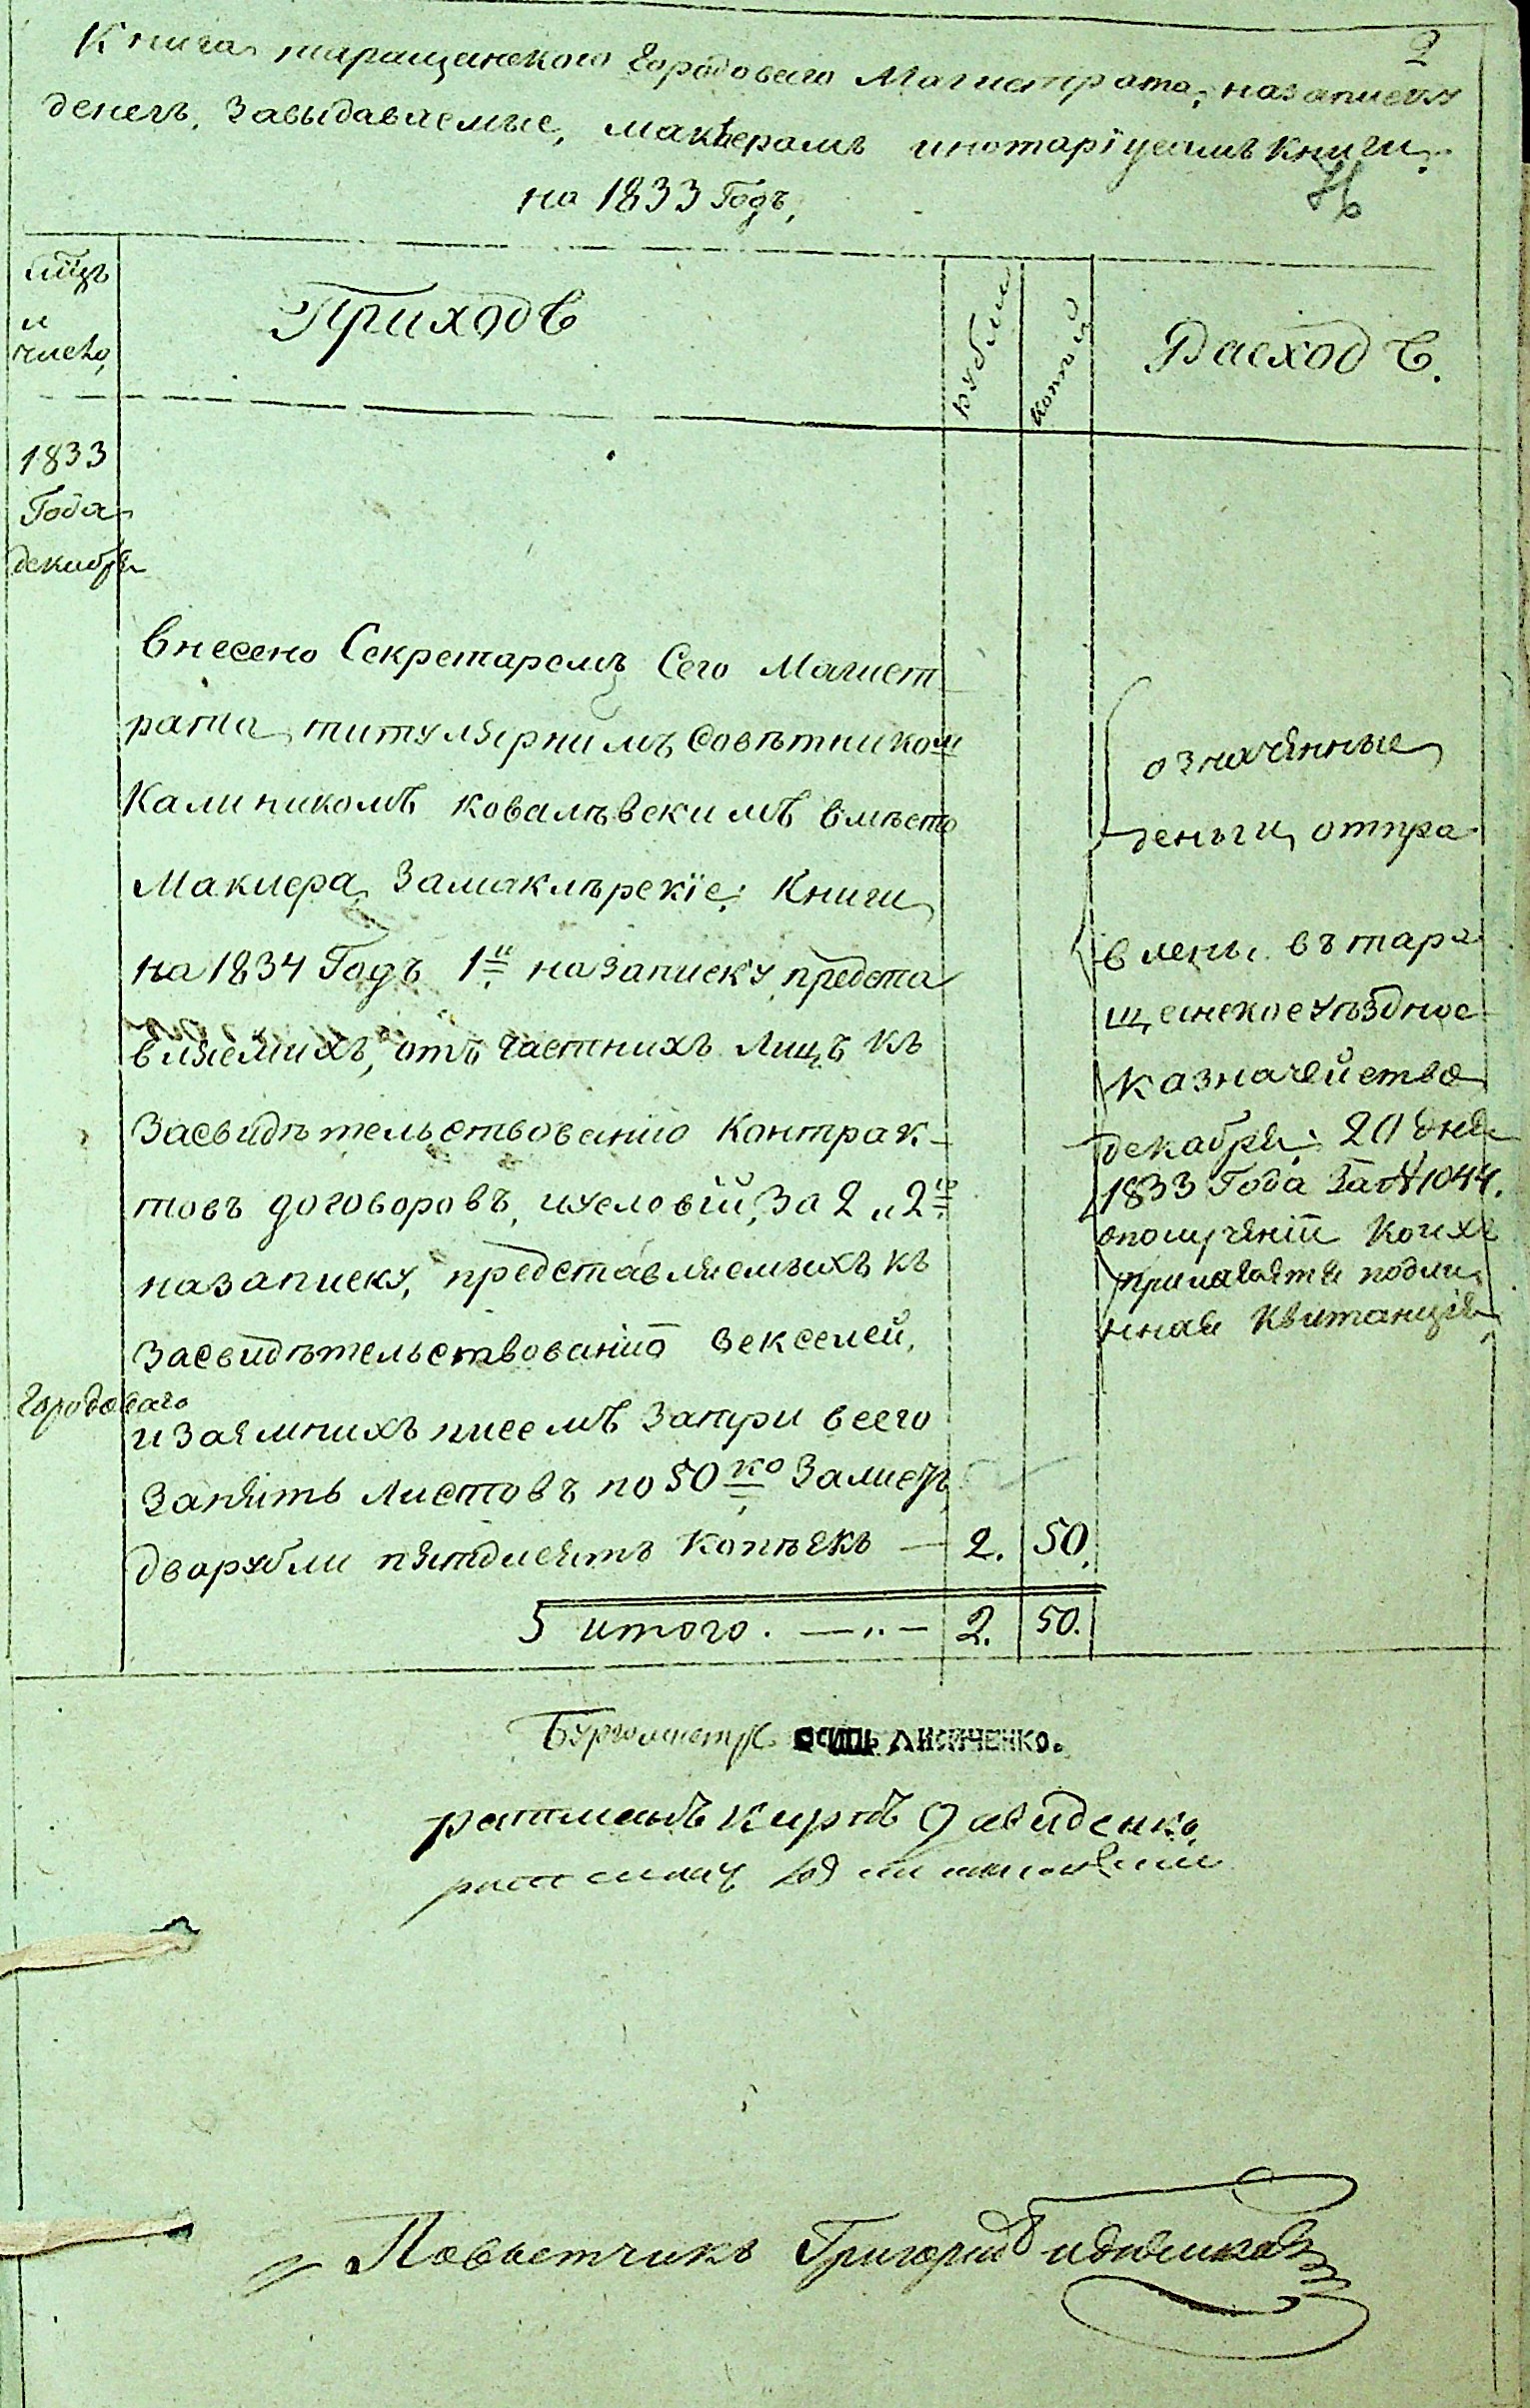 2
Книга таращанского Городоваго Магистрата, назаписку
денегъ, Завыдаваемые, маклерамъ инотаріусамъ книги.
на 1833 Годъ,
мцъ
и
число,
Приходъ
рубли
копѣй
Расходъ.
1833
Года
декабря
внесено Секретаремъ Сего Магист
рата, титулярнимъ Совѣтником
Калиникомъ ковалѣвскимъ вмѣсто
Маклера, Замаклѣрскіе, Книги
на 1834 Годъ 1й назаписку предста
вляемихъ, отъ частнихъ лицъ къ
Засвидѣтельствованію Контрак-
товъ договоровъ, иусловій, За 2 и 2ю
назаписку, представляемыхъ къ
засвидѣтельствованію векселей,
Городоваго
изаемнихъ писемъ Затри всего
Запять листовъ по 50 ко Залистъ
дварубли пятдисятъ Копѣякъ — 2. 50.
5 итого. — 2. 50.
означенные
деньги, отпра
влены въ тара
щанское уѣздное
казначейство
декабря 20 дня
1833 Года За № 1044.
ополученіи коихъ
прилагаятся подли
нная квитанція
Бургомистръ ОСИПЪ ЛИСИЧЕНКО.
ратманъ Кирилъ Давиденко
ратманъ
Повытчикъ Григорий